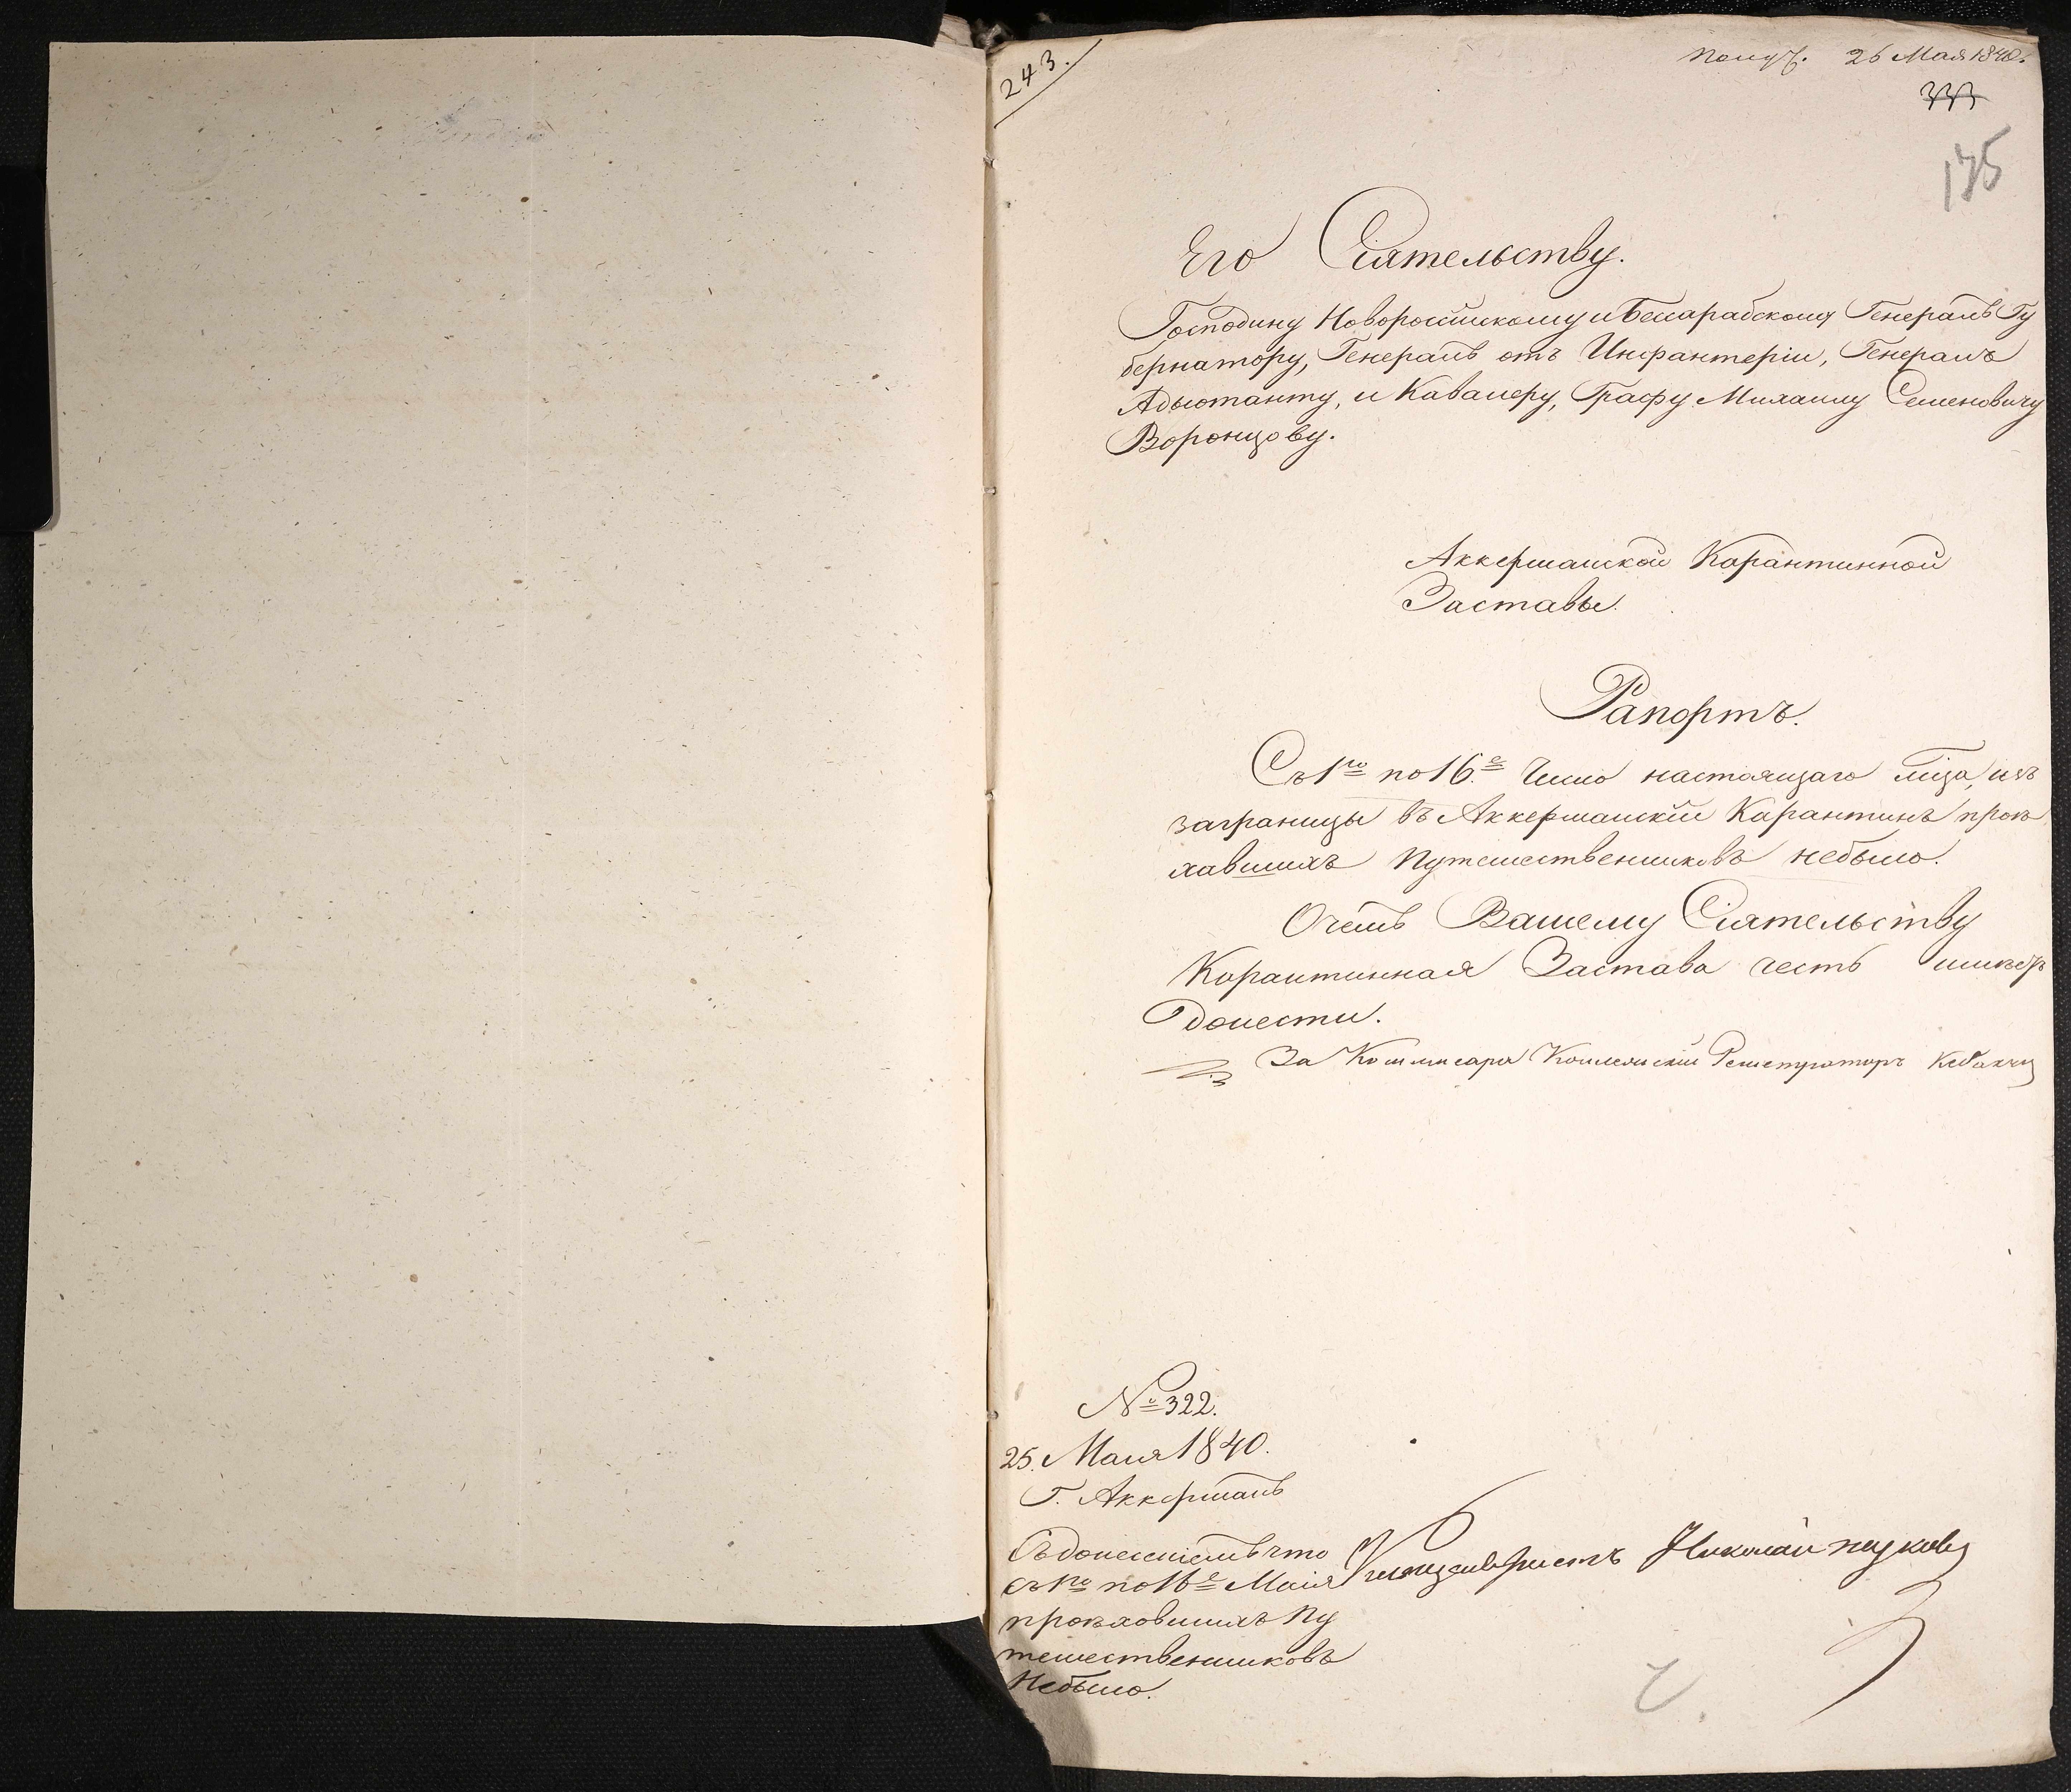 243.
Получ. 26 Мая 1840.
333
175
Его Сіятельству.
Господину Новороссійскому и Бессарабскому Генералъ Гу
бернатору, Генералъ отъ Инфантеріи, Генералъ
Адьютанту, и Кавалеру, Графу Михаилу Семеновичу
Воронцову.
Аккерманской Карантинной
Заставы.
Рапортъ.
Съ 1го по 16е Число настоящаго м̃ца, изъ
заграницы въ Аккерманскій Карантинъ проѣ
хавшихъ Путешественниковъ небыло.
О чемъ Вашему Сіятельству
Карантинная Застава честь имѣетъ
донести.
За Коммисара Коллежскій Регистраторъ
№ 322.
25. Маія 1840.
Г. Аккерманъ
Съ донесеніемъ что
съ 1го по 16е Маія
проѣховшихъ Пу
тешественниковъ
Небыло.
Канцеляристъ Николай